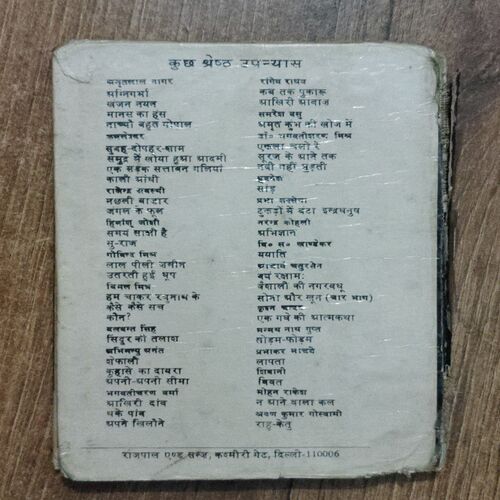 कुछ श्रेष्ठ उपन्यास
अमृतलाल नागर
अग्निगर्भा
खंजन नयन
मानस का हंस
नाच्यौ बहुत गोपाल
कमलेश्वर
सुबह-दोपहर-शाम
समुद्र में खोया हुआ आदमी
एक सड़क सत्तावन गलियां
काली आंधी
राजेन्द्र अवस्थी
मछली बाज़ार
जंगल के फूल
हिमांशु जोशी
समय साक्षी है
सु-राज
गोविन्द मिश्र
लाल पीली ज़मीन
उतरती हुई धूप
विमल मित्र
हम चाकर रघुनाथ के
कैसे कैसे सच
कौन?
बलवन्त सिंह
सिंदूर की तलाश
अभिमन्यु अनंत
शेफाली
कुहासे का दायरा
अपनी-अपनी सीमा
भगवतीचरण वर्मा
आखिरी दांव
थके पांव
अपने खिलौने
रांगेय राघव
कब तक पुकारूं
आखिरी आवाज़
समरेश बसु
अमृत कुंभ की खोज में
डॉ० भगवतीशरण मिश्र
एकला चलो रे
सूरज के आने तक
नदी नहीं मुड़ती
सांड़
टुकड़ों में बंटा इन्द्रधनुष
नरेन्द्र कोहली
अभिज्ञान
वि० स० खाण्डेकर
ययाति
आचार्य चतुरसेन
वयं रक्षामः
वैशाली की नगरवधू
सोना और खून (चार भाग)
कृश्न चन्दर
एक गधे की आत्मकथा
मन्मथ नाथ गुप्त
तोड़म-फोड़म
प्रभाकर माचवे
लापता
शिवानी
विवर्त
मोहन राकेश
न आने वाला कल
श्रवण कुमार गोस्वामी
राहु-केतु
राजपाल एण्ड सन्ज़, कश्मीरी गेट, दिल्ली-110006